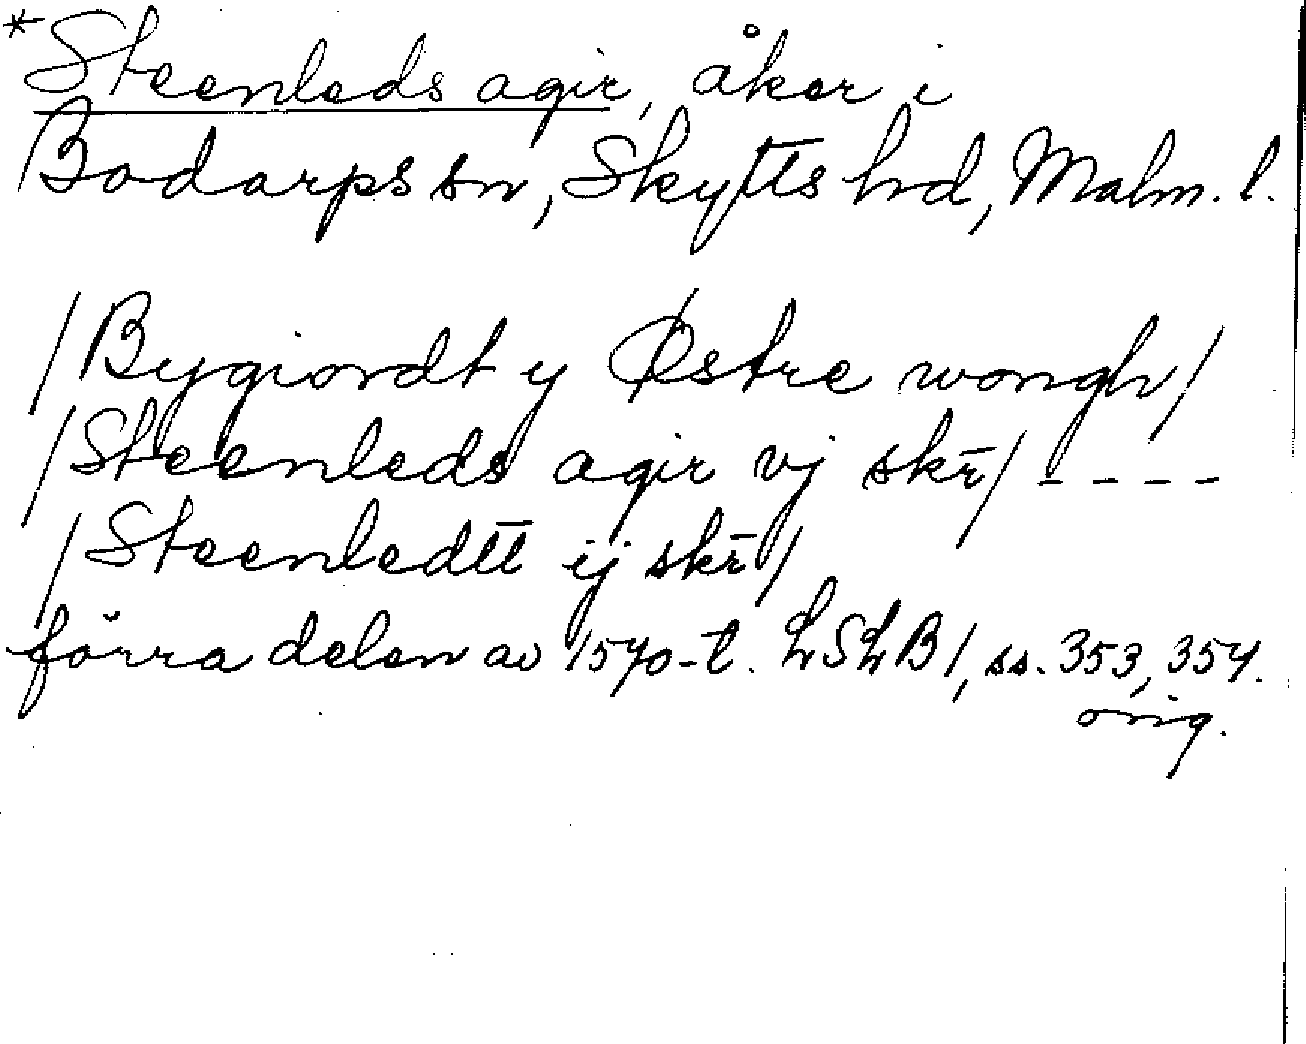 *Steenleds agir, åker i
Bodarps sn, Skytts hd, Malm. l.
/Bygiordt y Østre wongh/
/Steenleds agir vj skr̄/ - - - -
/Steenledtt ij skr̄/
förra delen av 1570-t. LSLB1, ss. 353, 354.
orig.